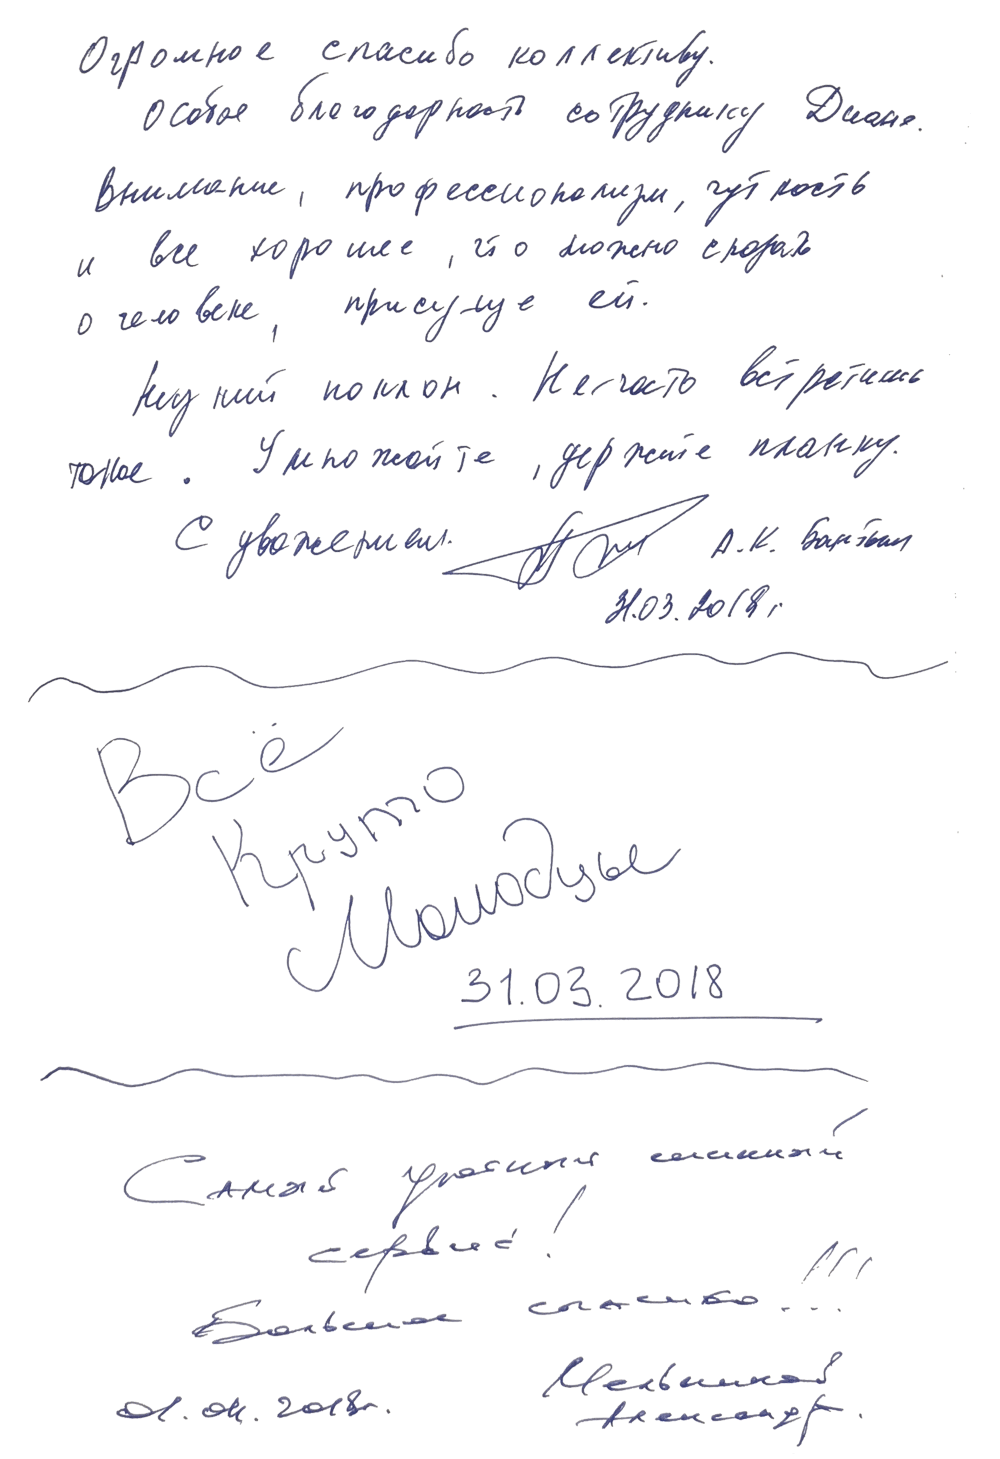 Огромное спасибо коллективу.
Особое благодарность сотруднику Диане.
Внимание, профессионализм, чуткость
и все хорошее, что можно сказать
о человеке, присуще ей.
Низкий поклон. Не часто встретишь
такое. Умножайте, держите планку.
С уважением А.К.
31.03.2018 г.
Всё
Круто
Молодцы
31.03.2018
Самый
сервис!
Большое спасибо!!!
01.04.2018г. Мельников
Александр.